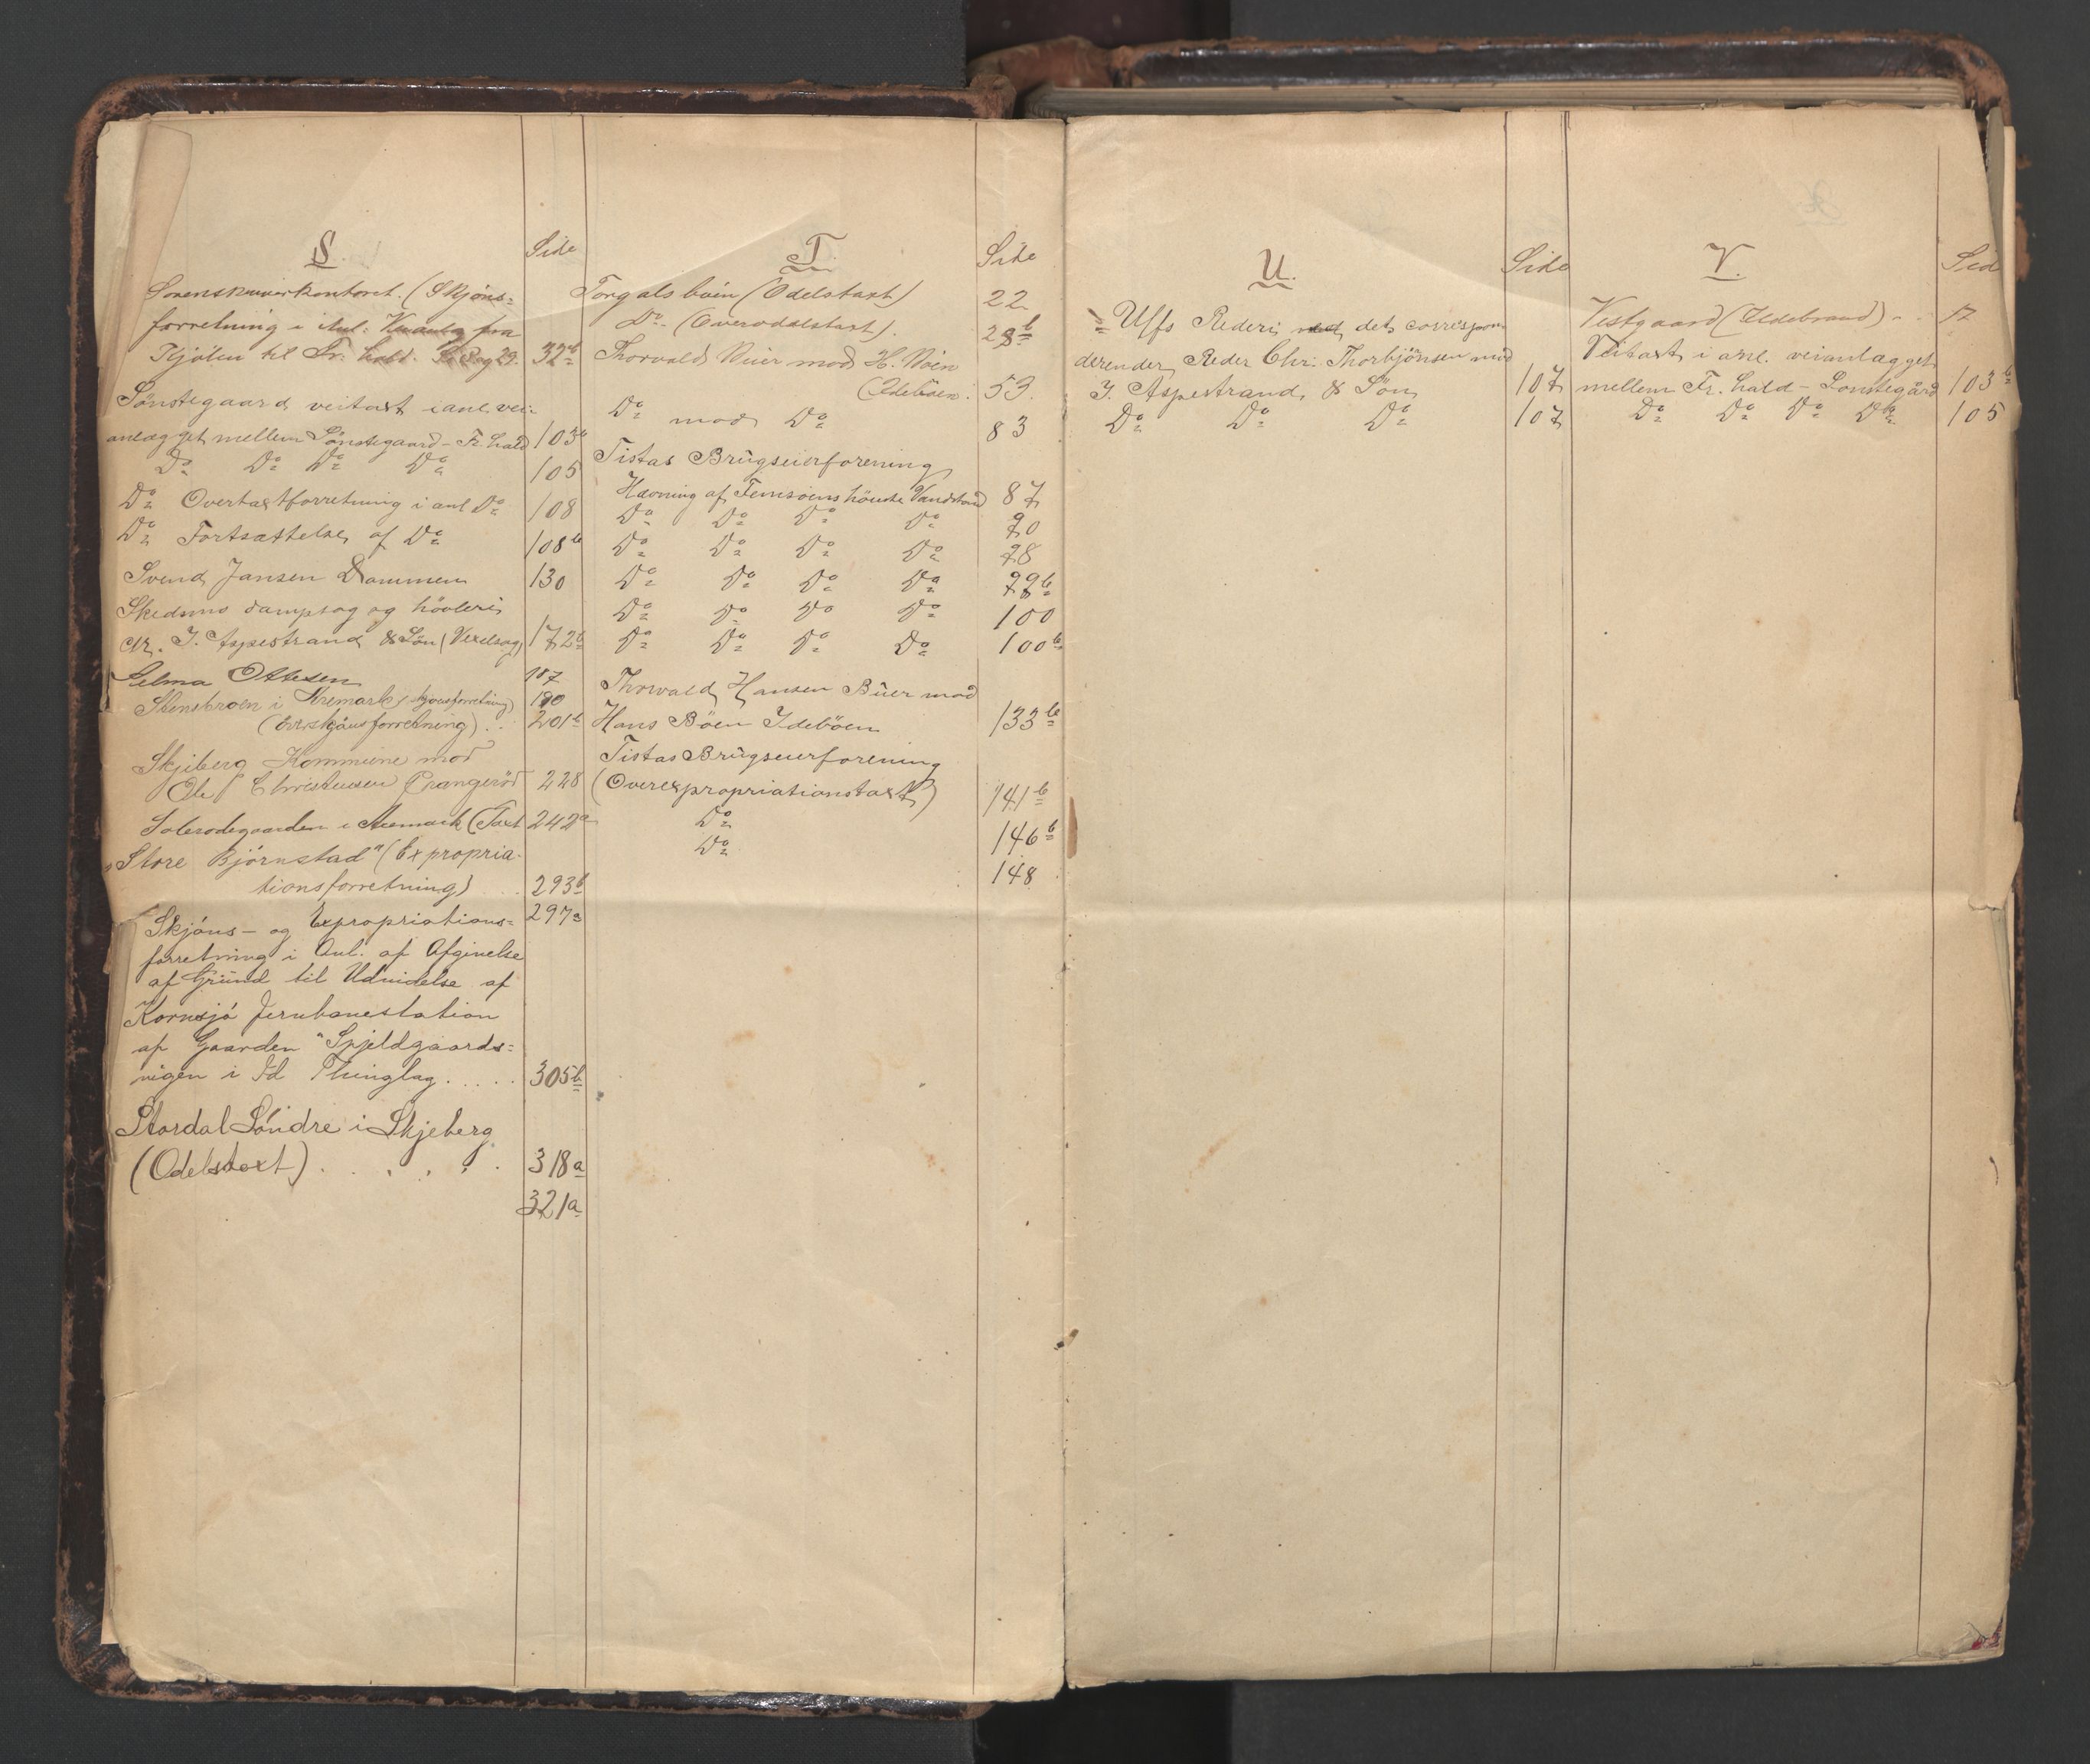 S.
Side
Sorenskriverkontoret. (Skjöns=
forretning i Anl: Veianlæg fra
Tjölen til Fr: hald. Se Pag 29. 32b
Sönstegaard veitaxt i anl. vei=
anlægget mellem Sönstegaard - Fr. hald 103b
Do Do Do Do 105
Do Overtaxtforretning i anl Do 108
Do Fortsættelse af Do 108b
Svend Jansen Dammen 130
Skedsmo dampsag og høvleri
ctr. J. Aspestrand & Sön (Vexelsag) 172b
Selma Ottesen 187
Stensbroen i Aremark (skjönsforretning) 190
(overskjönsforretning) . . 201b
Skjeberg Kommune mod
Ole Christensen Prangeröd 228
Solerodegaarden i Aremark (Taxt 242a
"Store Björnstad" (Expropria-
tionsforretning) . . 293b
Skjöns- og Expropriations= 297a
forretning i Anl. af Afgivelse
af Grund til Udvidelse af
Kornsjö Jernbanestation
af Gaarden "Spjeldgaards=
vigen i Id Thinglag . . . . . 305b
Stordal Söndre i Skjeberg
(Odelstaxt) . . . . . 318a
321a
T.
Side
Torgalsböen (Odelstaxt) 22
Do. (Overodelstaxt). 28b
Thorvald Buer mod H. Böen
(Ideböen: 53.
Do mod Do 83
Tistas Brugseierforening
Hævning af Femsøens höieste Vandstand 87
Do Do Do Do 90
Do Do Do Do 98
Do Do Do Do 99b
Do Do Do Do 100
Do Do Do Do 100b
Thorvald Hansen Buer mod
Hans Böen Ideböen 133b
Tistas Brugseierforening
(Overexpropriationstaxt) 141b
Do 146b
Do 148
U.
Side
Uffs Rederi ved det correspon
derender Reder Chr. Thorbjönsen mod
J. Aspestrand & Sön 107
Do Do Do 107
V.
Sid
Vestgaard (Ildebrand) - . 17
Veitaxt i anl. veianlægget
mellem Fr. hald - Sonstegård 103b
Do Do Do Do 105